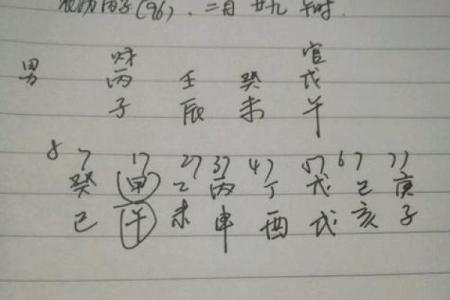 农历丙子(96)、二月廿九 午时.
财 官
男 丙 壬 癸 戊
子 辰 未 午
8 7 17 27 37 47 57 67 77
癸 甲 乙 丙 丁 戊 己 庚
巳 午 未 申 酉 戌 亥 子